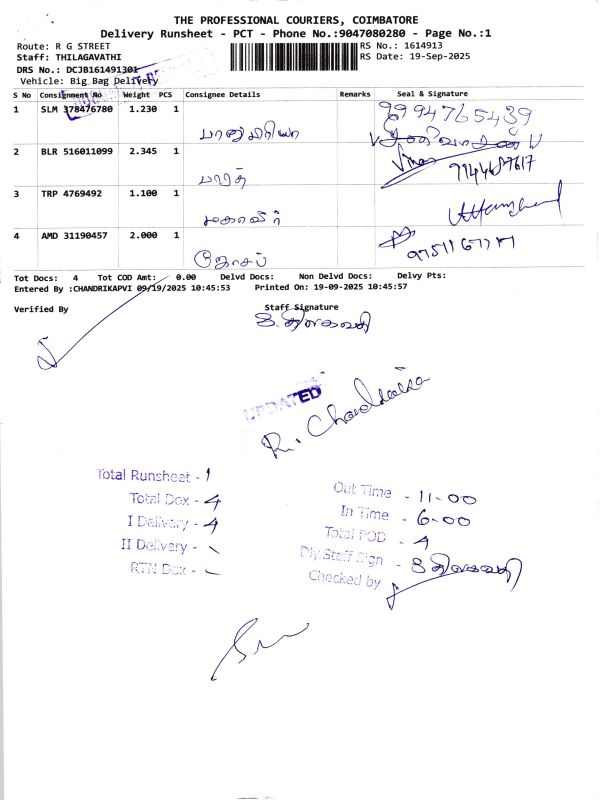 THE PROFESSIONAL COURIERS, COIMBATORE
Delivery Runsheet - PCT - Phone No.:9047080280 - Page No.:1
Route: R G STREET
RS No.: 1614913
Staff: THILAGAVATHI
RS Date: 19-Sep-2025
DRS No.: DCJB161491301
Vehicle: Big Bag Delivery
S No Consignment No Weight PCS Consignee Details Remarks Seal & Signature
1 SLM 378476780 1.230 1
9994765439
பானுபிரியா
2 BLR 516011099 2.345 1
பாரத்
3 TRP 4769492 1.100 1
மகாவீர்
4 AMD 31190457 2.000 1
ஜோசப்
Tot Docs: 4 Tot COD Amt: 0.00 Delvd Docs: Non Delvd Docs: Delvy Pts:
Entered By :CHANDRIKAPVI 09/19/2025 10:45:53 Printed On: 19-09-2025 10:45:57
Verified By
Staff Signature
உ. திலகவதி
UPDATED
R. Chandrika
Total Runsheet - 1
Total Dox - 4
I Delivery - 4
II Delivery -
RTN Dox -
Out Time - 11-00
In Time - 6-00
Total POD - 4
Dly.Staff Sign - உ திலகவதி
Checked by